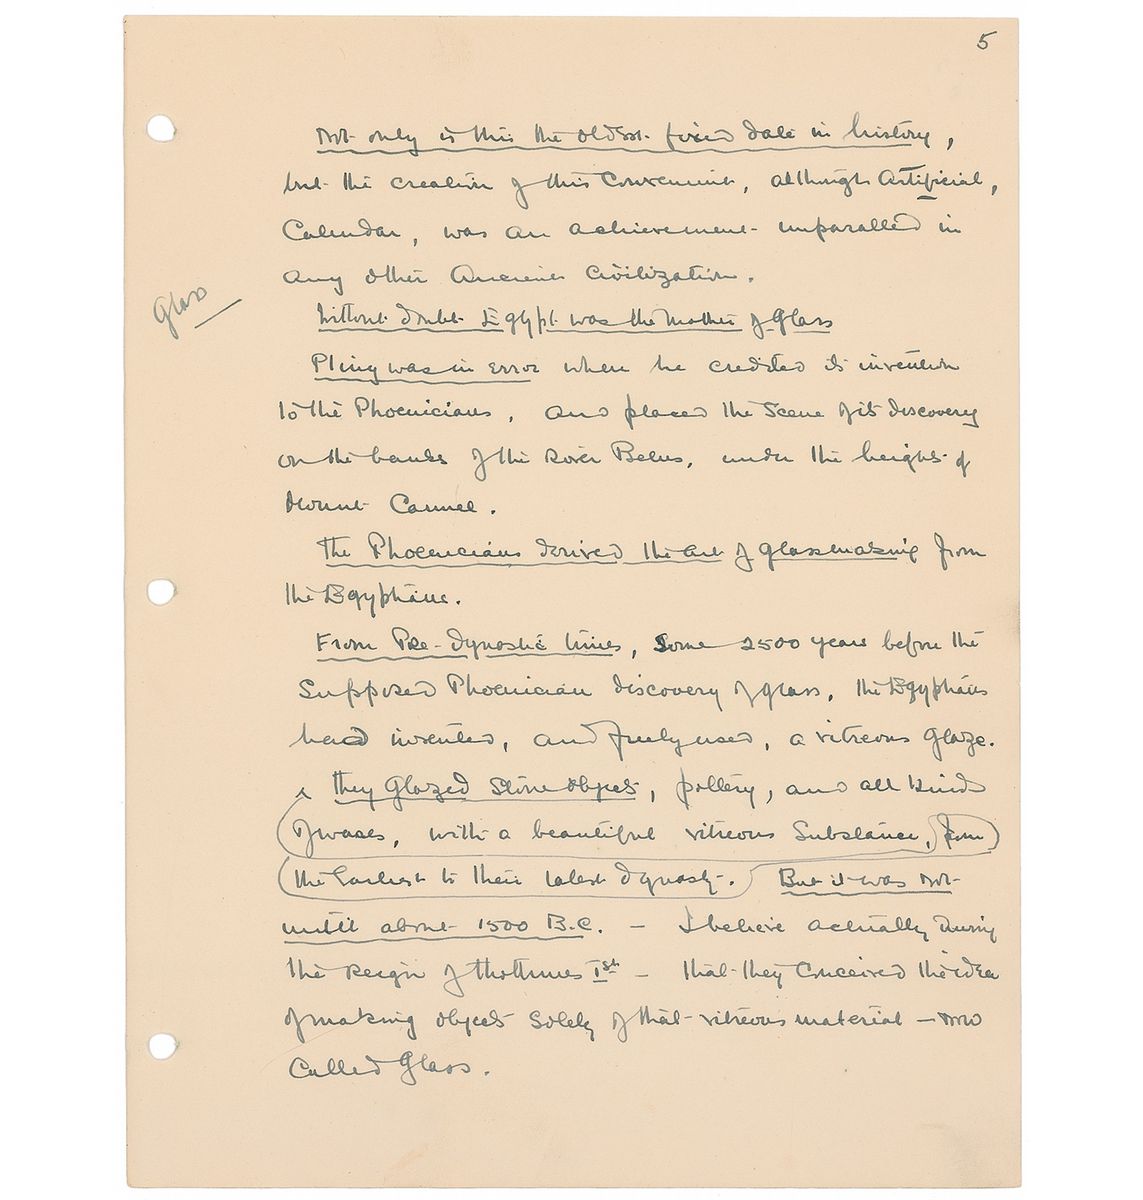 5
Not only is this the oldest fixed date in history,
but the creation of this Convenient, although Artificial,
Calendar, was an achievement unparalled in
any other Ancient Civilization.
Glass
Without doubt Egypt was the Mother of Glass
Pliny was in error when he credited its invention
to the Phoenicians, and placed the Scene of its discovery
on the banks of the River Belus, under the heights of
Mount Carmel.
The Phoenicians derived the art of glassmaking from
the Egyptians.
From Pre-dynastic times, Some 2500 years before the
Supposed Phoenician discovery of glass, the Egyptians
had invented, and freely used, a vitreous glaze.
they Glazed Stone objects, pottery, and all kinds
of vases, with a beautiful vitreous Substance, from
the Earliest to their latest dynasty. But it was not
until about 1500 B.C. - I believe actually during
the Reign of Thothmes Ist - that they Conceived the idea
of making objects Solely of that vitreous material - now
Called Glass.